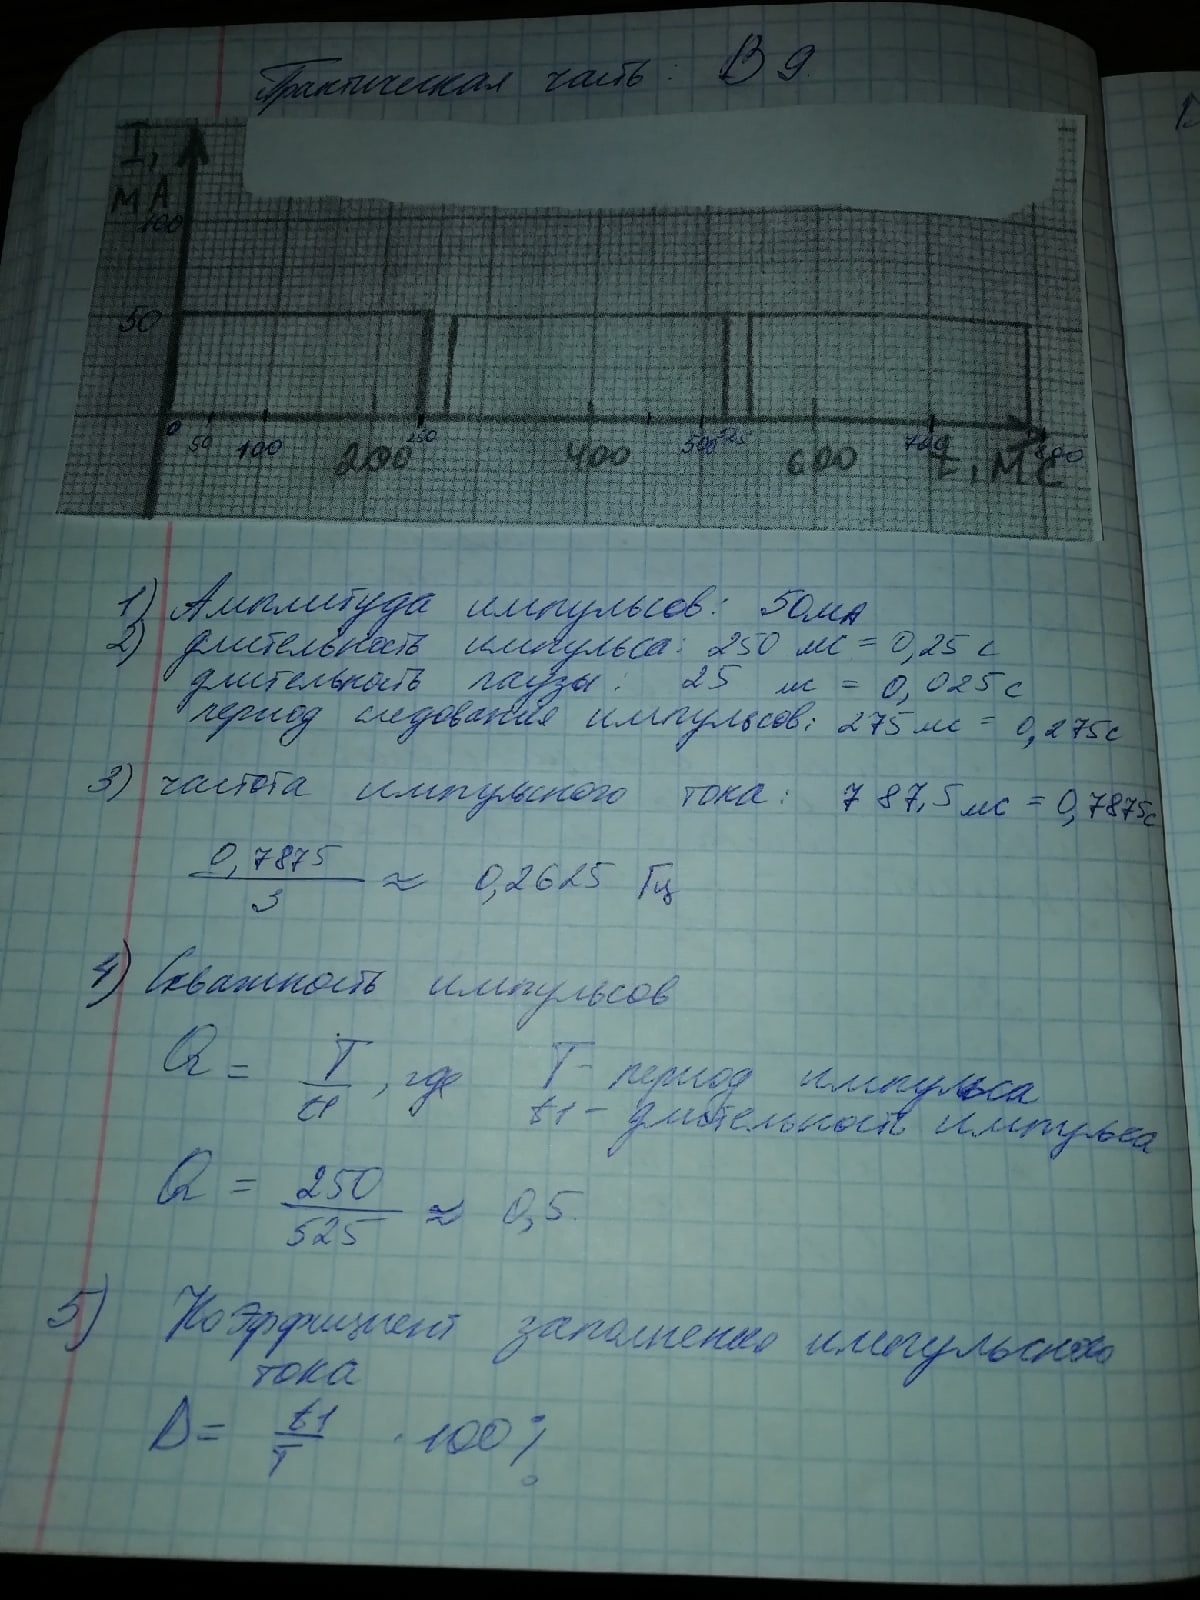 Практическая часть: В 9.
I,
мА
100
50
0 50 100 200 250 400 500 525 600 700 t, мс 800
1) Амплитуда импульсов: 50мА
2) длительность импульса: 250 мс = 0,25 с
длительность паузы: 25 мс = 0,025с
период следования импульсов: 275мс = 0,275с
3) частота импульсного тока: 787,5мс = 0,7875с
0,7875
3
≈ 0,2625 Гц
4) Скважность импульсов
Q = T/t1, где T - период импульса
t1 - длительность импульса
Q = 250/525 ≈ 0,5.
5) Коэффициент заполнения импульсного
тока
D = t1/T · 100%